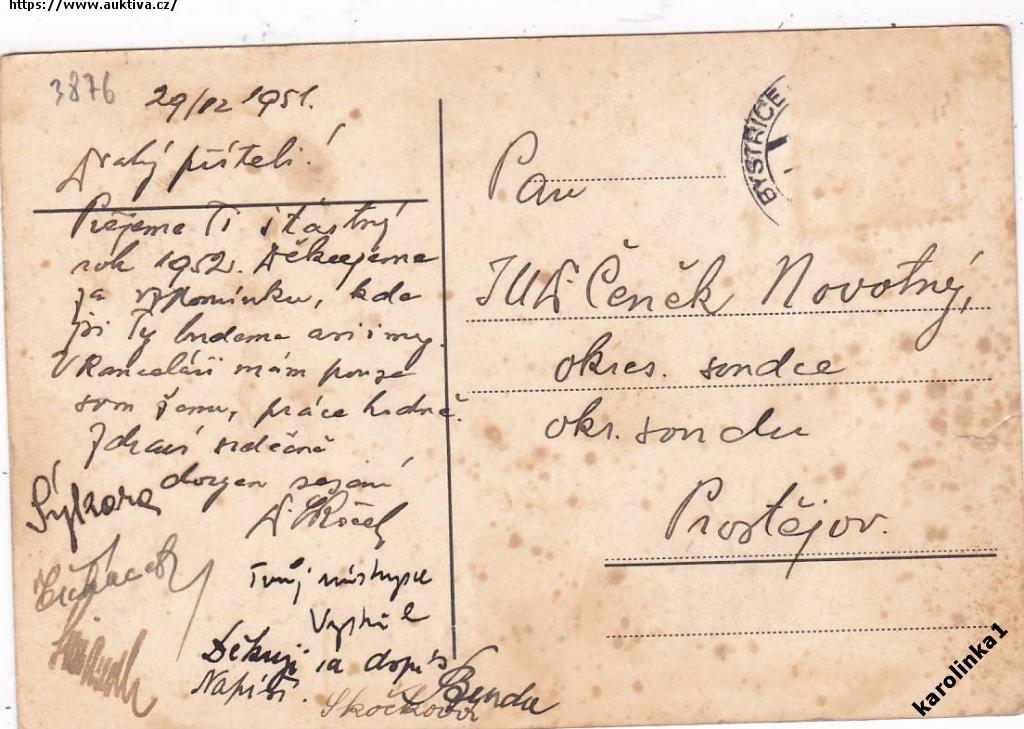 https://www.auktiva.cz/
3876
29/12 1951.
Drahý příteli!
Přejeme Ti šťastný
rok 1952. Děkujeme
za vzpomínku, kde
jsi Ty budeme
V kanceláři mám pouze
sám ženu, práce hodně.
Zdraví srdečně
Sýkora
Tvůj nástupce
Děkuji za dopis
Napíši.
Benda
Skočková
BYSTŘICE
Pan
JUDr Čeněk Novotný,
okres. soudce
okr. soudu
Prostějov.
karolinka1